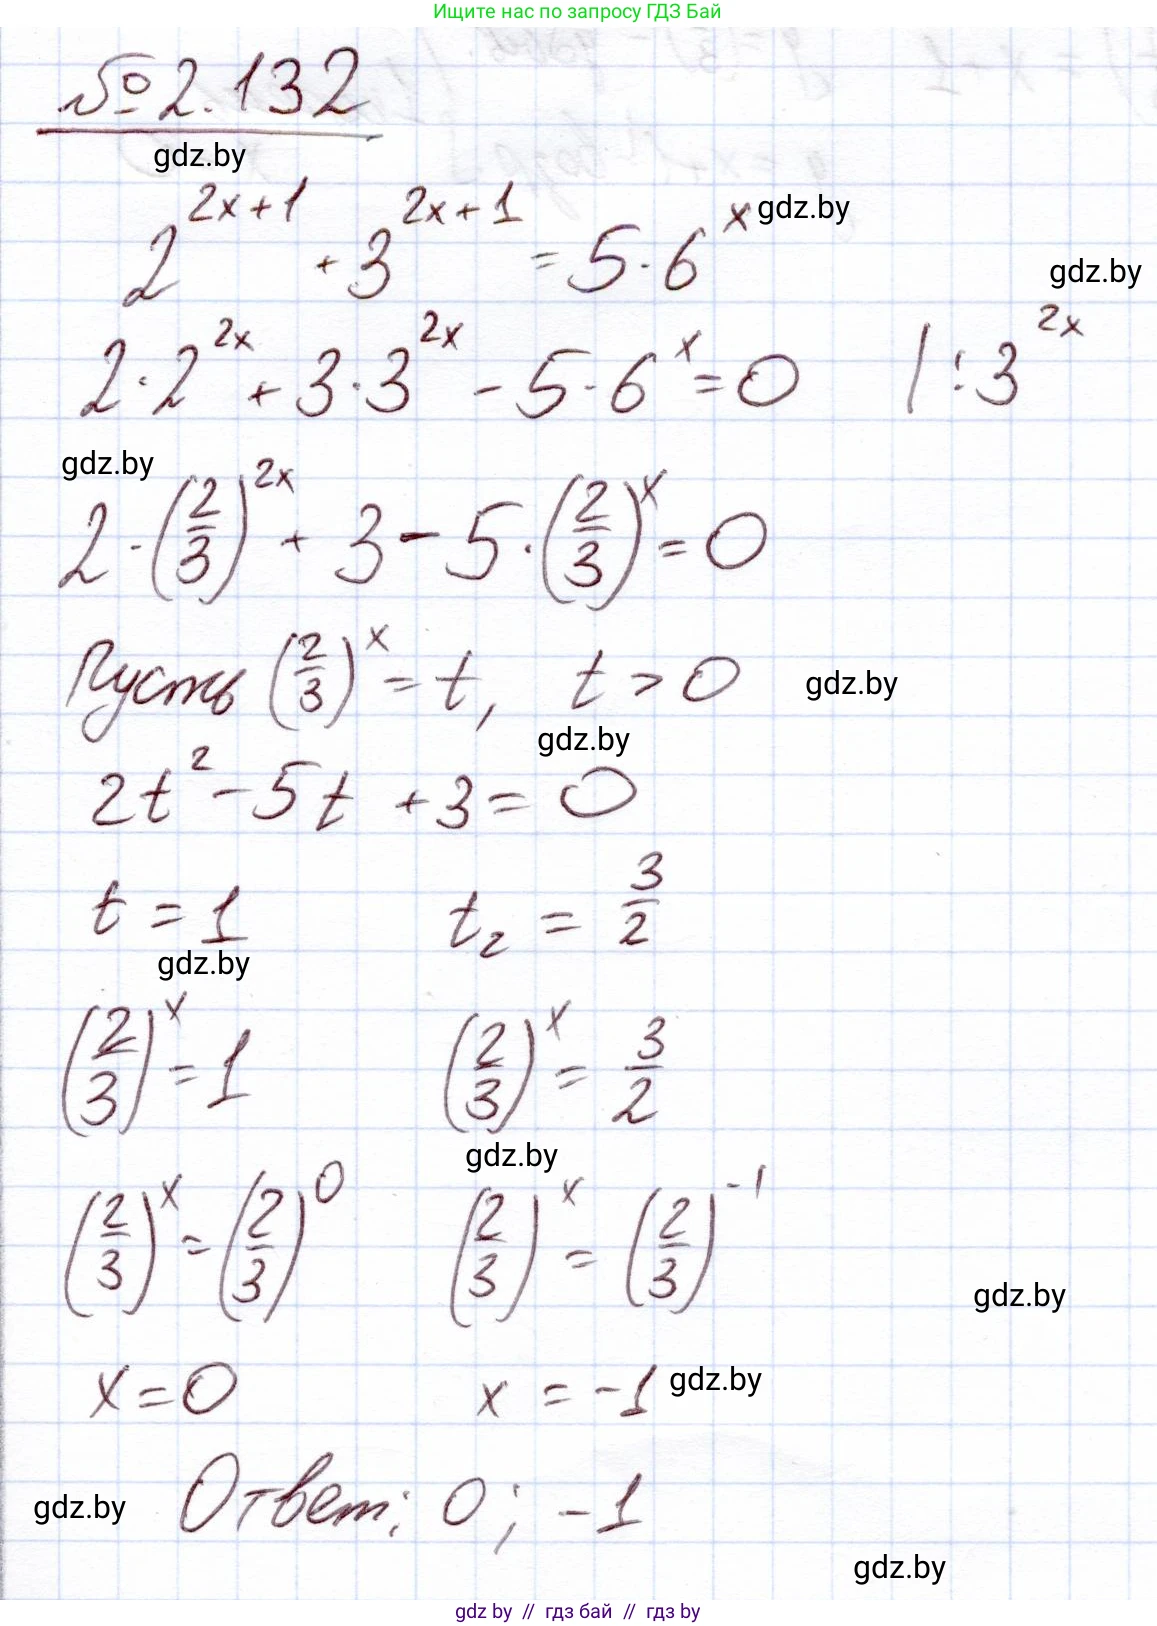 Ищите нас по запросу ГДЗ Бай
№ 2.132
gdz.by
2^{2x+1} + 3^{2x+1} = 5·6^x gdz.by
gdz.by
2·2^{2x} + 3·3^{2x} - 5·6^x = 0 | : 3^{2x}
gdz.by
2·(2/3)^{2x} + 3 - 5·(2/3)^x = 0
Пусть (2/3)^x = t, t > 0 gdz.by
gdz.by
2t² - 5t + 3 = 0
t = 1 t₂ = 3/2
gdz.by
(2/3)^x = 1 (2/3)^x = 3/2
gdz.by
(2/3)^x = (2/3)^0 (2/3)^x = (2/3)^{-1}
gdz.by
x = 0 x = -1 gdz.by
gdz.by Ответ: 0; -1
gdz.by
gdz by // гдз бай // гдз by